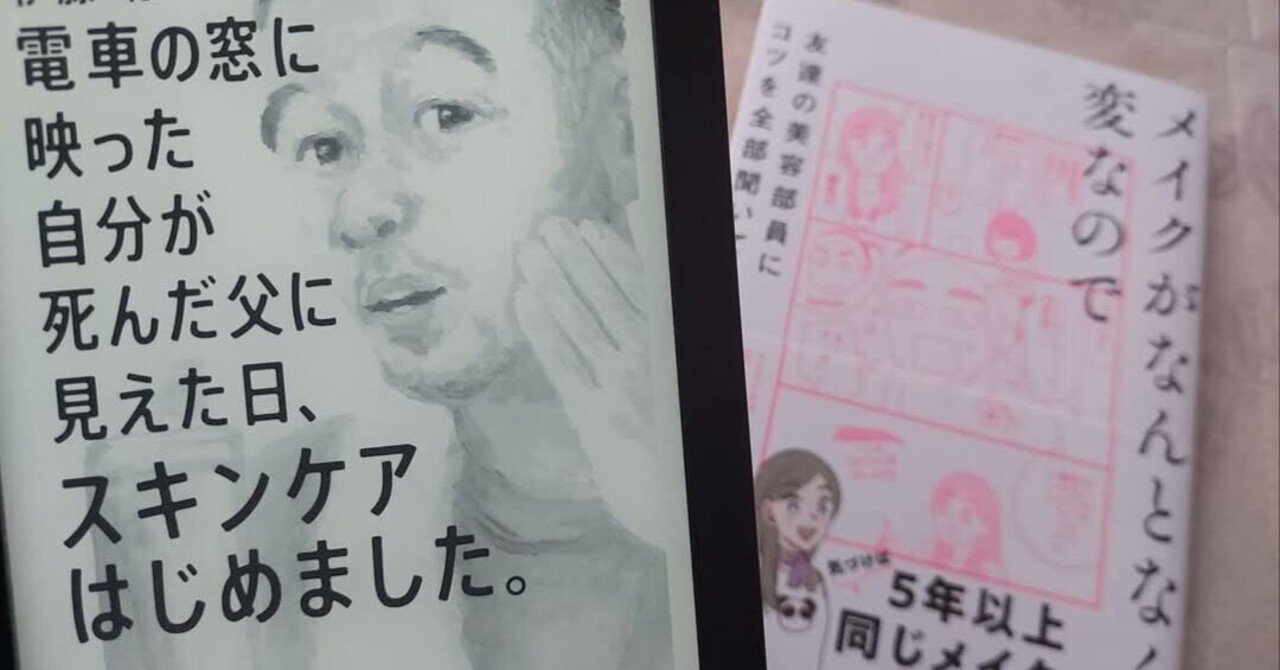 電車の窓に
映った
自分が
死んだ父に
見えた日、
スキンケア
はじめました。
メイクがなんとなく
変なので
友達の美容部員に
コツを全部聞い
気づけば
5年以上
同じメイク